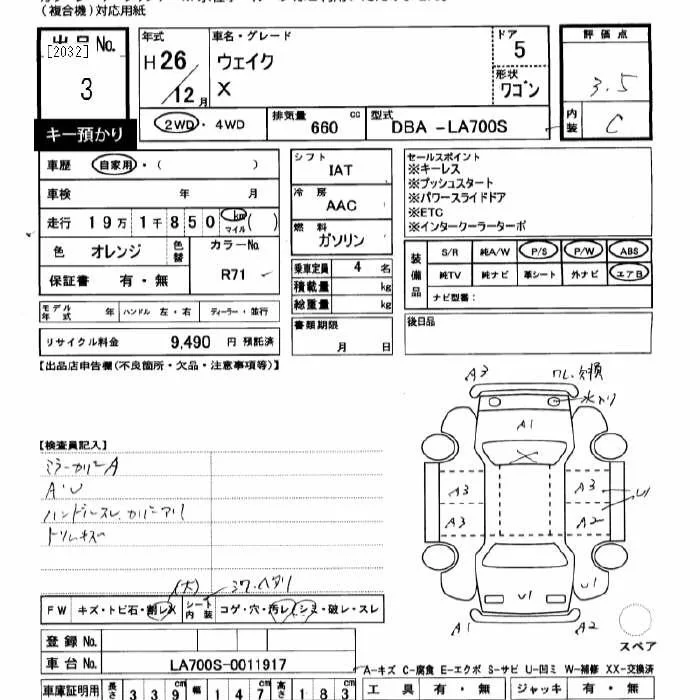 (複合機)対応用紙
出品No.
[2032]
3
キー預かり
年式
H26/12月
車名・グレード
ウェイク
X
ドア
5
形状
ワゴン
評価点
3.5
内装
C
2WD・4WD
排気量
660
cc
型式
DBA -LA700S
車歴
自家用・( )
車検 年 月
走行 19万1千850 km マイル ( )
色 オレンジ
色替
カラーNo.
R71
保証書 有・無
モデル年式 年
ハンドル 左・右
ディーラー・並行
リサイクル料金 9,490 円 預託済
シフト
IAT
冷房
AAC
燃料
ガソリン
乗車定員 4 名
積載量 kg
総重量 kg
書類期限
月 日
セールスポイント
※キーレス
※プッシュスタート
※パワースライドドア
※ETC
※インタークーラーターボ
装備品
S/R 純A/W P/S P/W ABS
純TV 純ナビ 革シート 外ナビ エアB
ナビ型番:
後日品
【出品店申告欄(不良箇所・欠品・注意事項等)】
【検査員記入】
ミラーカバーA
A・U
トリムキズ
A3
A1
A3
A3
A3
A2
U1
U1
U1
A1
A2
スペア
(大)
FW キズ・トビ石・割レ
シート内装 コゲ・穴・汚レ・シミ・破レ・スレ
登録No.
車台No. LA700S-0011917
A-キズ C-腐食 E-エクボ S-サビ U-凹ミ W-補修 XX-交換済
車庫証明用 長さ 339 幅 147 高さ 183
工具 有・無 ジャッキ 有・無